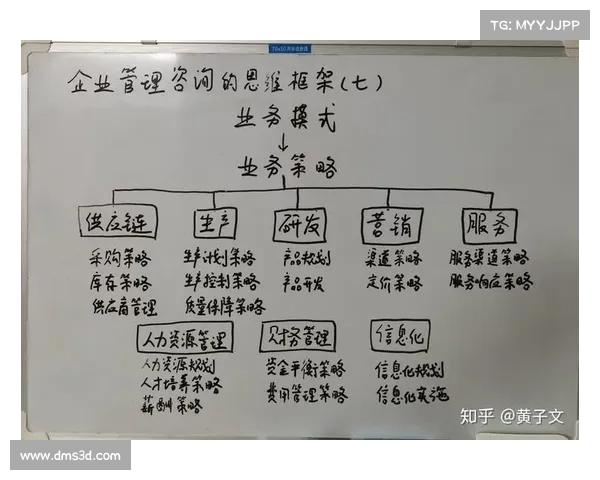 TG: MYYJJPP
70x50
企业管理咨询的思维框架(七)
业务模式
↓
业务策略
供应链 生产 研发 营销 服务
采购策略 生产计划策略 产品规划 渠道策略 服务渠道策略
库存策略 生产控制策略 产品开发 定价策略 服务响应策略
供应商管理 质量保障策略
人力资源管理 财务管理 信息化
人力资源规划 资金平衡策略 信息化规划
人才培养策略 费用管理策略 信息化实施
薪酬策略
知乎 @黄子文
www.dms3d.com